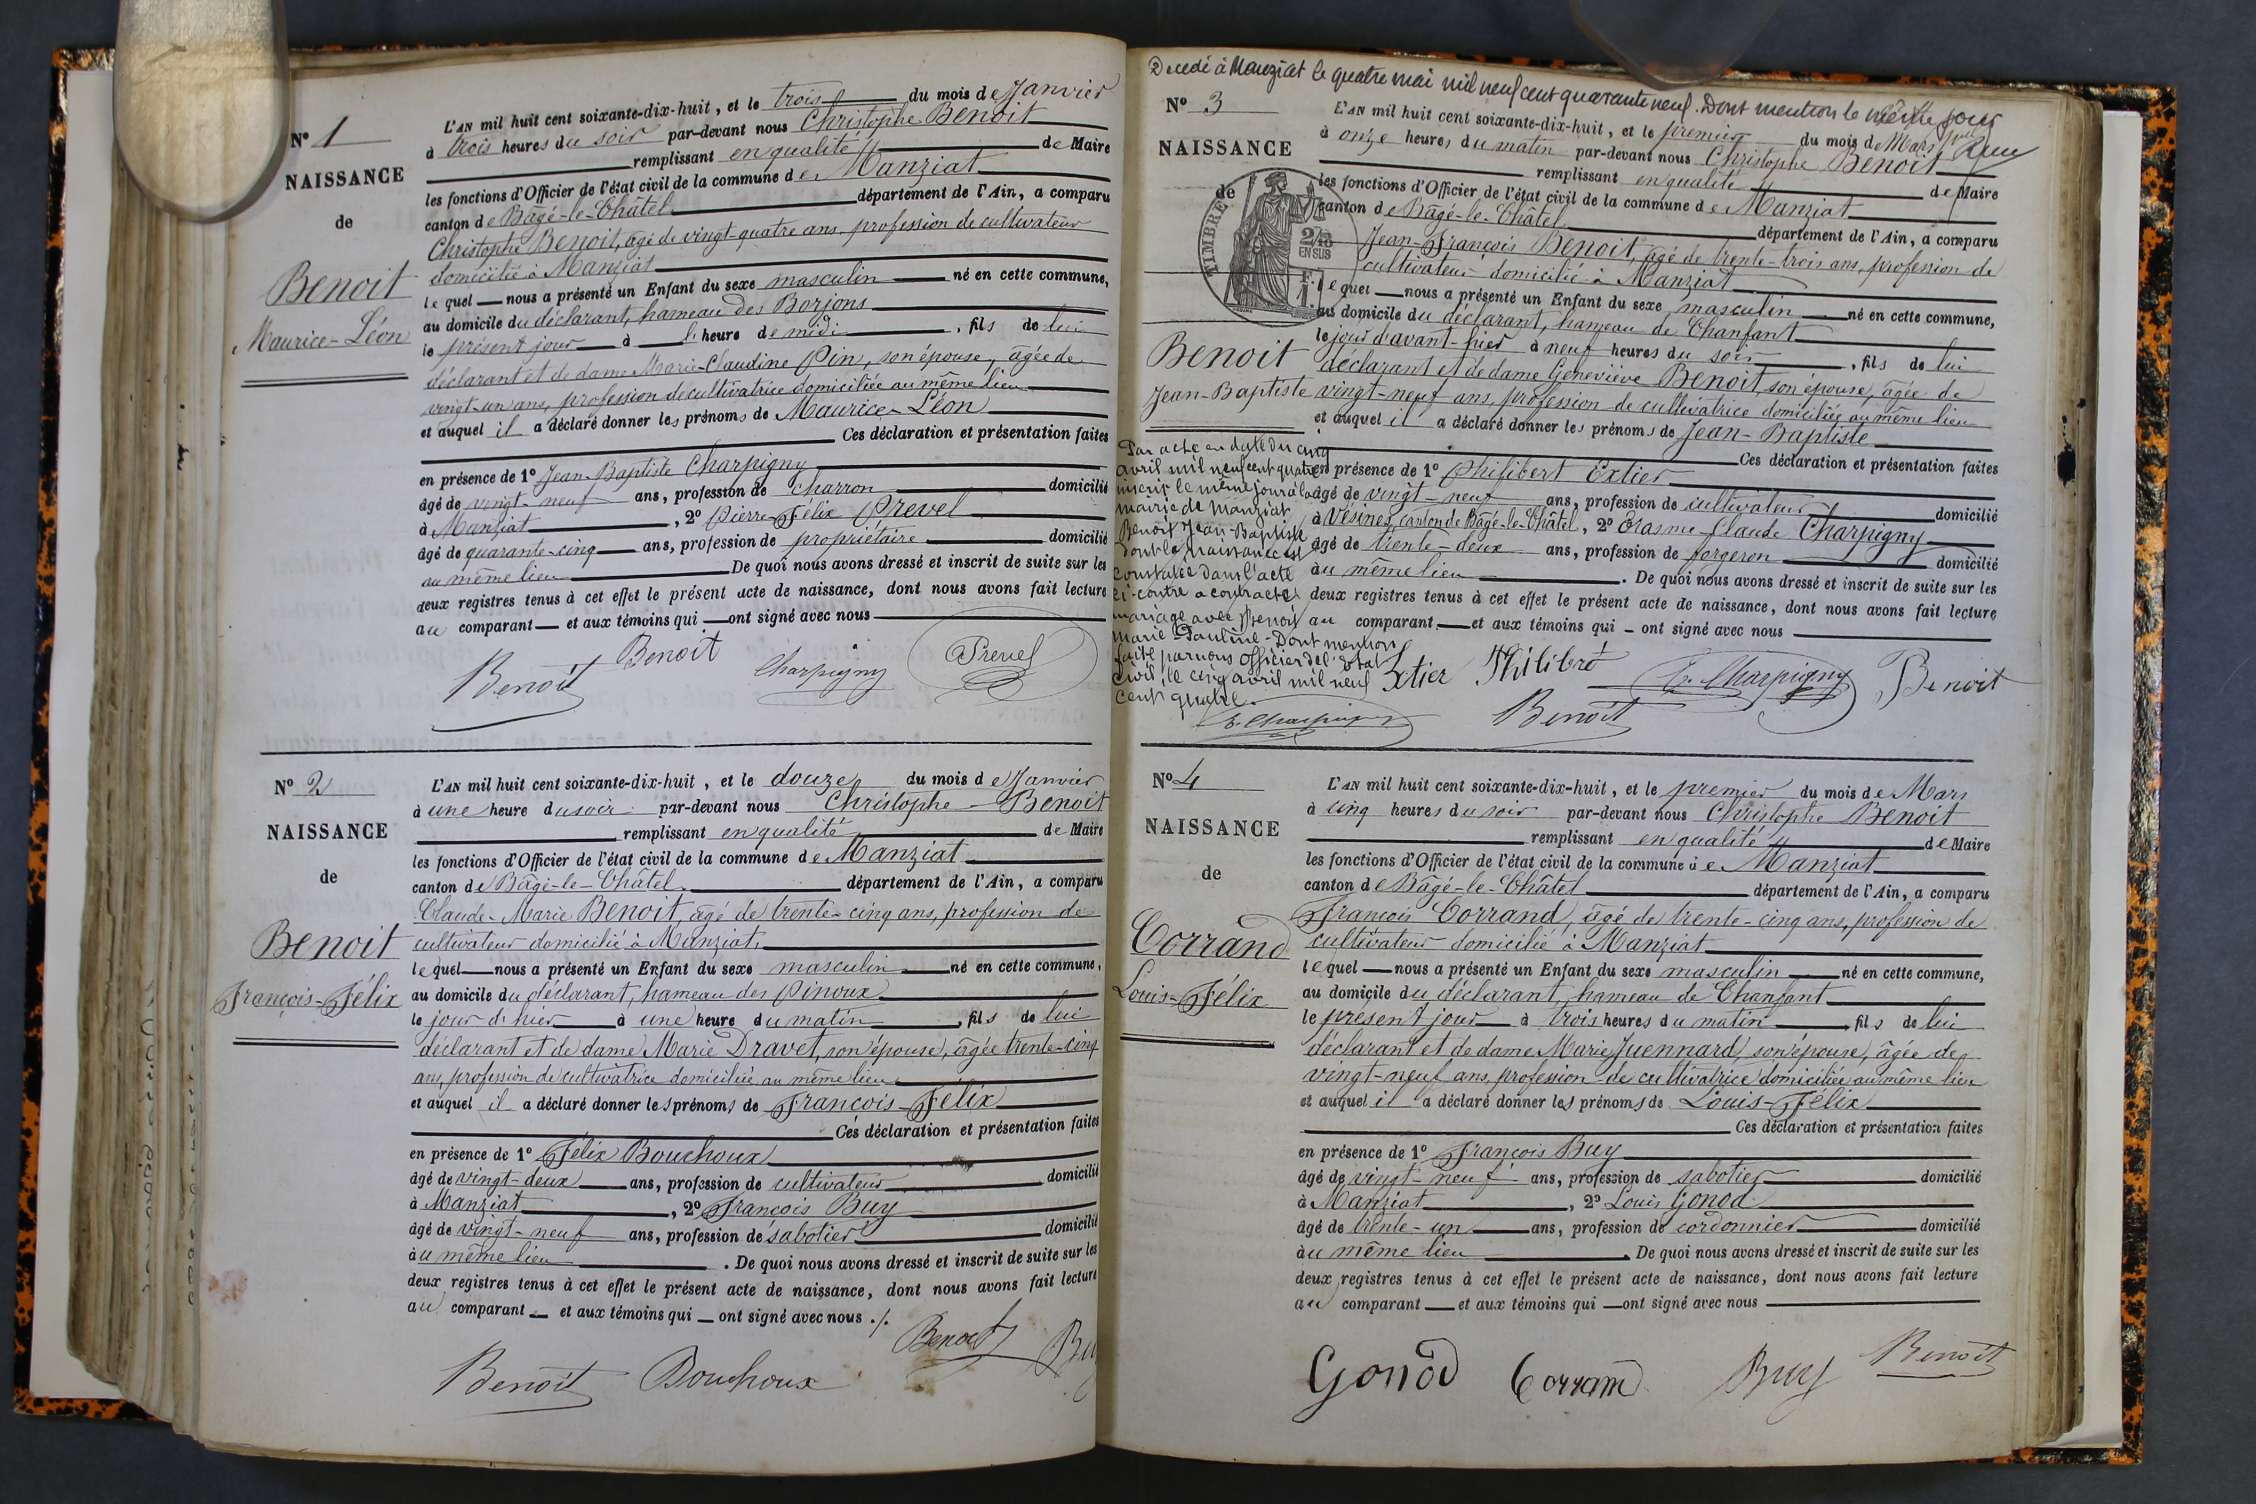 N° 1
NAISSANCE
de
Benoit
Maurice-Léon
L'AN mil huit cent soixante-dix-huit, et le trois du mois de Janvier
à trois heures du soir par-devant nous Christophe Benoit
remplissant en qualité de Maire
les fonctions d'Officier de l'état civil de la commune de Manziat
canton de Bâgé-le-Châtel département de l'Ain, a comparu
Christophe Benoit, âgé de vingt-quatre ans, profession de cultivateur
domicilié à Manziat
lequel nous a présenté un Enfant du sexe masculin né en cette commune,
au domicile du déclarant, hameau des Borjons
le présent jour à l'heure de midi, fils de lui
déclarant et de dame Marie-Claudine Pin, son épouse, âgée de
vingt-un ans, profession de cultivatrice domiciliée au même lieu
et auquel il a déclaré donner les prénoms de Maurice-Léon
Ces déclaration et présentation faites
en présence de 1° Jean-Baptiste Charpigny
âgé de vingt-neuf ans, profession de charron domicilié
à Manziat, 2° Pierre-Félix Prevel
âgé de quarante-cinq ans, profession de propriétaire domicilié
au même lieu De quoi nous avons dressé et inscrit de suite sur les
deux registres tenus à cet effet le présent acte de naissance, dont nous avons fait lecture
au comparant et aux témoins qui ont signé avec nous
Benoit Benoit Charpigny Prevel
N° 2
NAISSANCE
de
Benoit
François-Félix
L'AN mil huit cent soixante-dix-huit, et le douze du mois de Janvier
à une heure du soir par-devant nous Christophe Benoit
remplissant en qualité de Maire
les fonctions d'Officier de l'état civil de la commune de Manziat
canton de Bâgé-le-Châtel département de l'Ain, a comparu
Claude-Marie Benoit, âgé de trente-cinq ans, profession de
cultivateur domicilié à Manziat,
lequel nous a présenté un Enfant du sexe masculin né en cette commune,
au domicile du déclarant, hameau des Pinoux
le jour d'hier à une heure du matin, fils de lui
déclarant et de dame Marie Dravet, son épouse, âgée trente-cinq
ans, profession de cultivatrice domiciliée au même lieu
et auquel il a déclaré donner les prénoms de François-Félix
Ces déclaration et présentation faites
en présence de 1° Félix Bouchoux
âgé de vingt-deux ans, profession de cultivateur domicilié
à Manziat, 2° François Buy
âgé de vingt-neuf ans, profession de sabotier domicilié
au même lieu. De quoi nous avons dressé et inscrit de suite sur les
deux registres tenus à cet effet le présent acte de naissance, dont nous avons fait lecture
au comparant et aux témoins qui ont signé avec nous ./.
Benoit Bouchoux Benoit Buy
Décédé à Manziat le quatre mai mil neuf cent quarante neuf. Dont mention le même jour
N° 3
NAISSANCE
de
TIMBRE
2/10
EN SUS
Benoit
Jean-Baptiste
L'AN mil huit cent soixante-dix-huit, et le premier du mois de Mars
à onze heures du matin par-devant nous Christophe Benoit
remplissant en qualité de Maire
les fonctions d'Officier de l'état civil de la commune de Manziat
canton de Bâgé-le-Châtel département de l'Ain, a comparu
Jean-François Benoit, âgé de trente-trois ans, profession de
cultivateur domicilié à Manziat
lequel nous a présenté un Enfant du sexe masculin né en cette commune,
au domicile du déclarant, hameau de Chanfant
le jour d'avant-hier à neuf heures du soir, fils de lui
déclarant et de dame Geneviève Benoit, son épouse, âgée de
vingt-neuf ans, profession de cultivatrice domiciliée au même lieu
et auquel il a déclaré donner les prénoms de Jean-Baptiste
Ces déclaration et présentation faites
en présence de 1° Philibert Extier
âgé de vingt-neuf ans, profession de cultivateur domicilié
à Vésines, canton de Bâgé-le-Châtel, 2° Erasme-Claude Charpigny
âgé de trente-deux ans, profession de forgeron domicilié
au même lieu. De quoi nous avons dressé et inscrit de suite sur les
deux registres tenus à cet effet le présent acte de naissance, dont nous avons fait lecture
au comparant et aux témoins qui ont signé avec nous
Par acte en date du cinq
avril mil neuf cent quatre
inscrit le même jour à la
mairie de Manziat
Benoit Jean-Baptiste
dont la naissance est
constatée dans l'acte
ci-contre a contracté
mariage avec Benoit
Marie-Pauline - Dont mention
faite par nous officier de l'état
civil, le cinq avril mil neuf
cent quatre.
E. Charpigny
Extier Philibert E. Charpigny Benoit
Benoit
N° 4
NAISSANCE
de
Corrand
Louis-Félix
L'AN mil huit cent soixante-dix-huit, et le premier du mois de Mars
à cinq heures du soir par-devant nous Christophe Benoit
remplissant en qualité de Maire
les fonctions d'Officier de l'état civil de la commune de Manziat
canton de Bâgé-le-Châtel département de l'Ain, a comparu
François Corrand, âgé de trente-cinq ans, profession de
cultivateur domicilié à Manziat
lequel nous a présenté un Enfant du sexe masculin né en cette commune,
au domicile du déclarant, hameau de Chanfant
le présent jour à trois heures du matin, fils de lui
déclarant et de dame Marie Juennard, son épouse, âgée de
vingt-neuf ans, profession de cultivatrice domiciliée au même lieu
et auquel il a déclaré donner les prénoms de Louis-Félix
Ces déclaration et présentation faites
en présence de 1° François Buy
âgé de vingt-neuf ans, profession de sabotier domicilié
à Manziat, 2° Louis Gonod
âgé de trente-un ans, profession de cordonnier domicilié
au même lieu. De quoi nous avons dressé et inscrit de suite sur les
deux registres tenus à cet effet le présent acte de naissance, dont nous avons fait lecture
au comparant et aux témoins qui ont signé avec nous
Gonod Corrand Buy Benoit